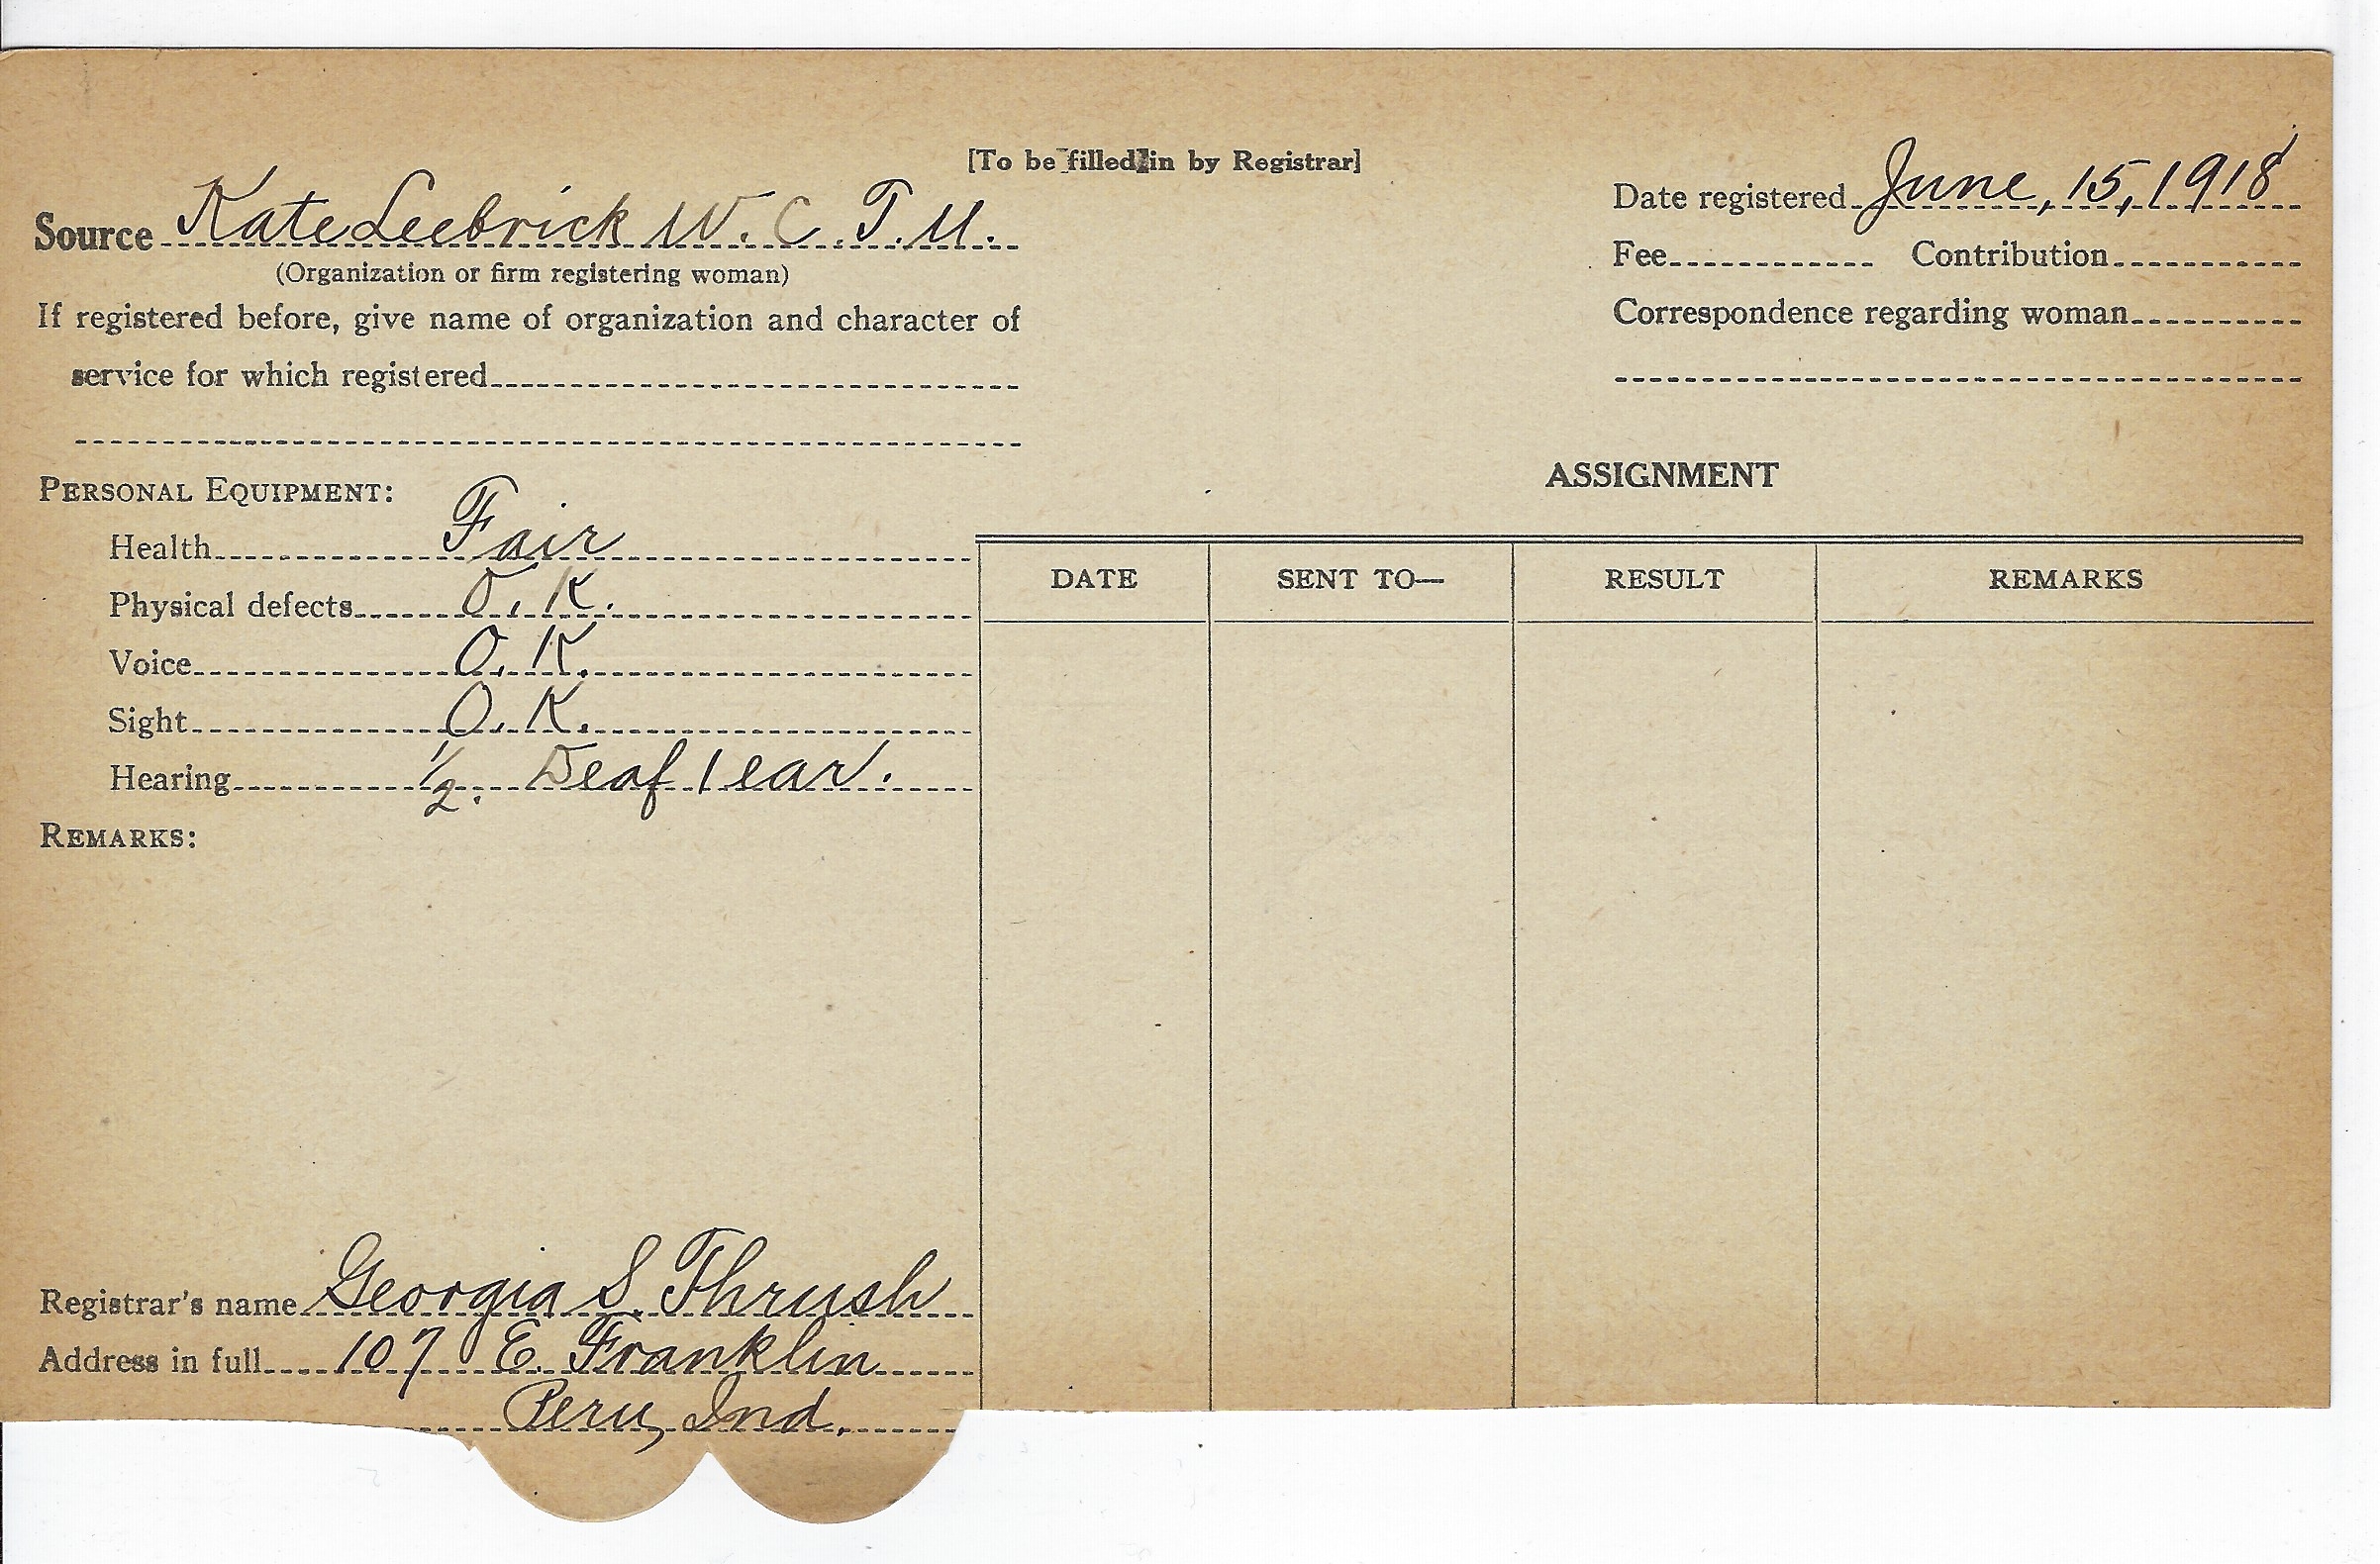 [To be filled in by Registrar]
Source Kate Leebrick W. C. T. U.
(Organization or firm registering woman)
If registered before, give name of organization and character of
service for which registered
Date registered June, 15, 1918
Fee Contribution
Correspondence regarding woman
PERSONAL EQUIPMENT:
Health Fair
Physical defects O. K.
Voice O. K.
Sight O. K.
Hearing 1/2. Deaf 1 ear.
REMARKS:
ASSIGNMENT
DATE SENT TO— RESULT REMARKS
Registrar's name Georgia S. Thrush
Address in full 107 E. Franklin
Peru, Ind.